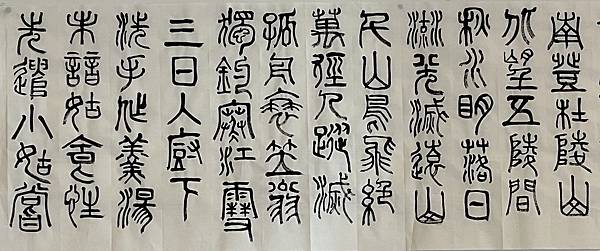 南登杜陵山
北望五陵間
秋水明落日
流光滅遠山
千山鳥飛絕
萬徑人蹤滅
孤舟蓑笠翁
獨釣寒江雪
三日入廚下
洗手作羹湯
未諳姑食性
先遣小姑嘗